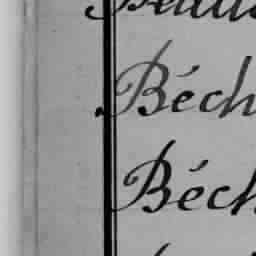 Béch
Béch